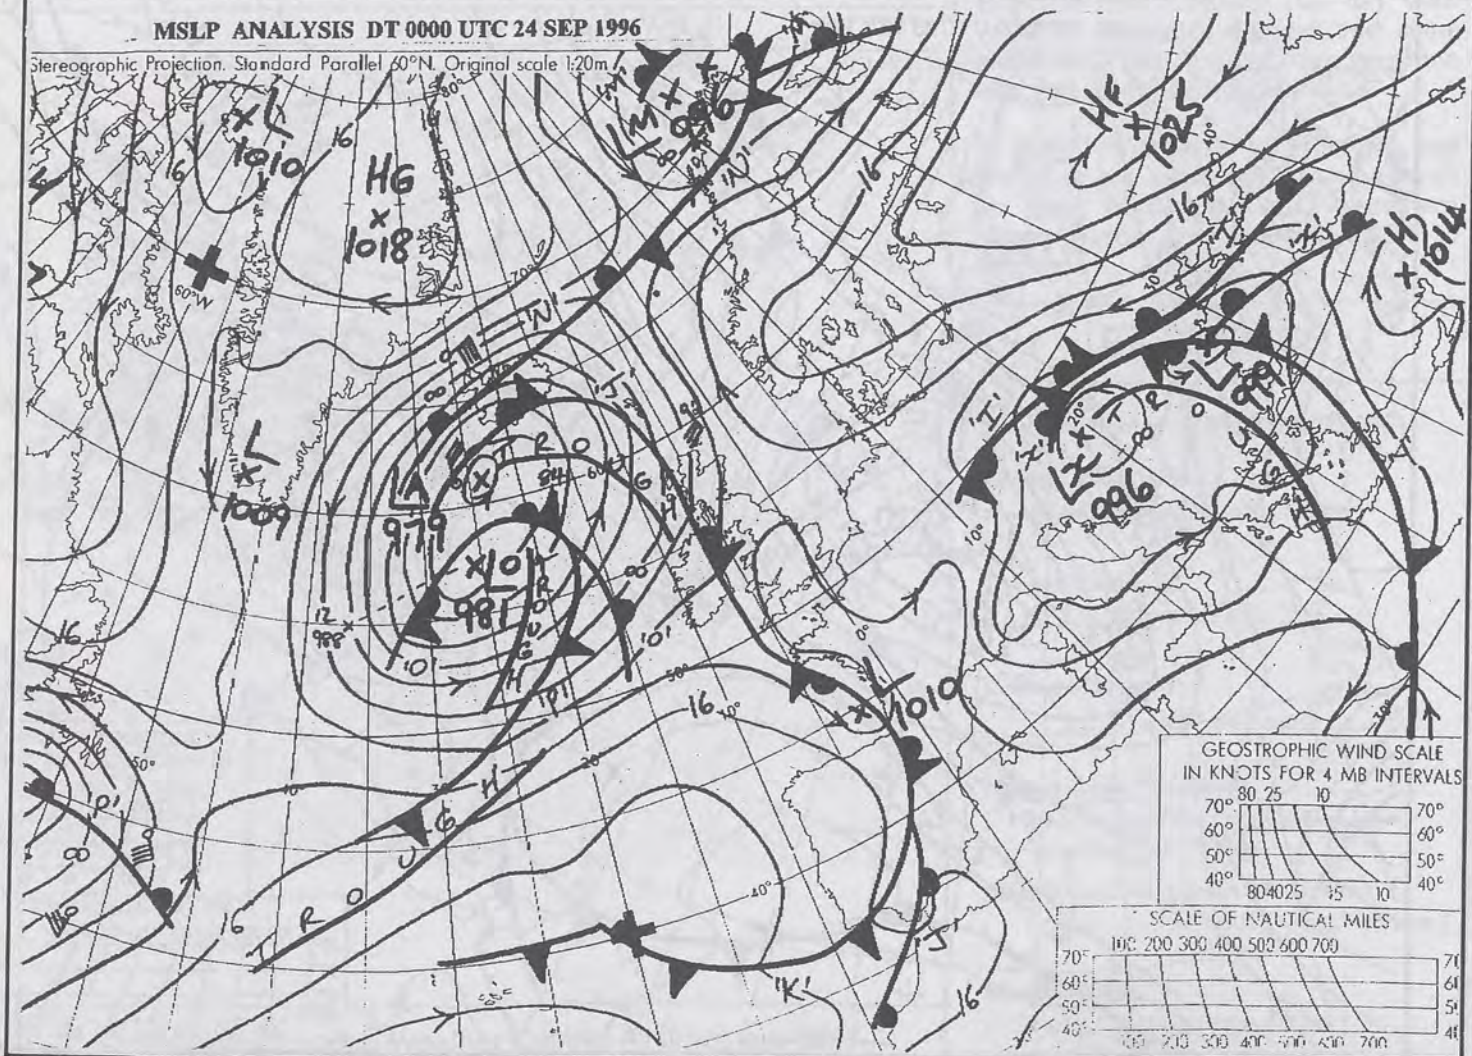 MSLP ANALYSIS DT 0000 UTC 24 SEP 1996
Stereographic Projection. Standard Parallel 60°N. Original scale 1:20m
80°
L
1010
16
16
HG
1018
LM
996
'N'
HF
1025
40°
16
16
HJ
1014
60°W
70°
'N'
L
1009
L
979
TROUGH
84
'I'
'X'
LX
996
20°
TROUGH
L
991
10°
10
L
981
TROUGH
12
988
'O'
'O'
'P'
16
50°
50°
16
10°
0°
L
1010
20°
30
40°
'P'
TROUGH
16
'K'
'J'
16
GEOSTROPHIC WIND SCALE
IN KNOTS FOR 4 MB INTERVALS
80 25 10
70° 70°
60° 60°
50° 50°
40° 40°
80 40 25 15 10
SCALE OF NAUTICAL MILES
100 200 300 400 500 600 700
70°
60°
50°
40°
100 200 300 400 500 600 700